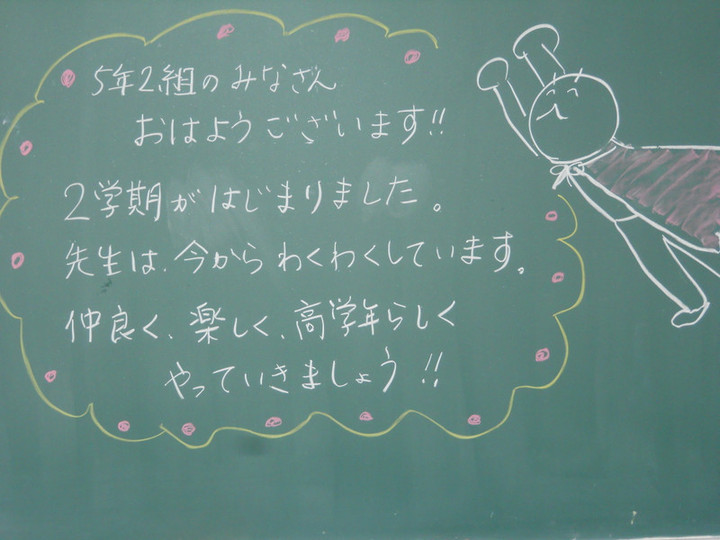 5年2組のみなさん
おはようございます!!
2学期がはじまりました。
先生は、今からわくわくしています。
仲良く、楽しく、高学年らしく
やっていきましょう!!